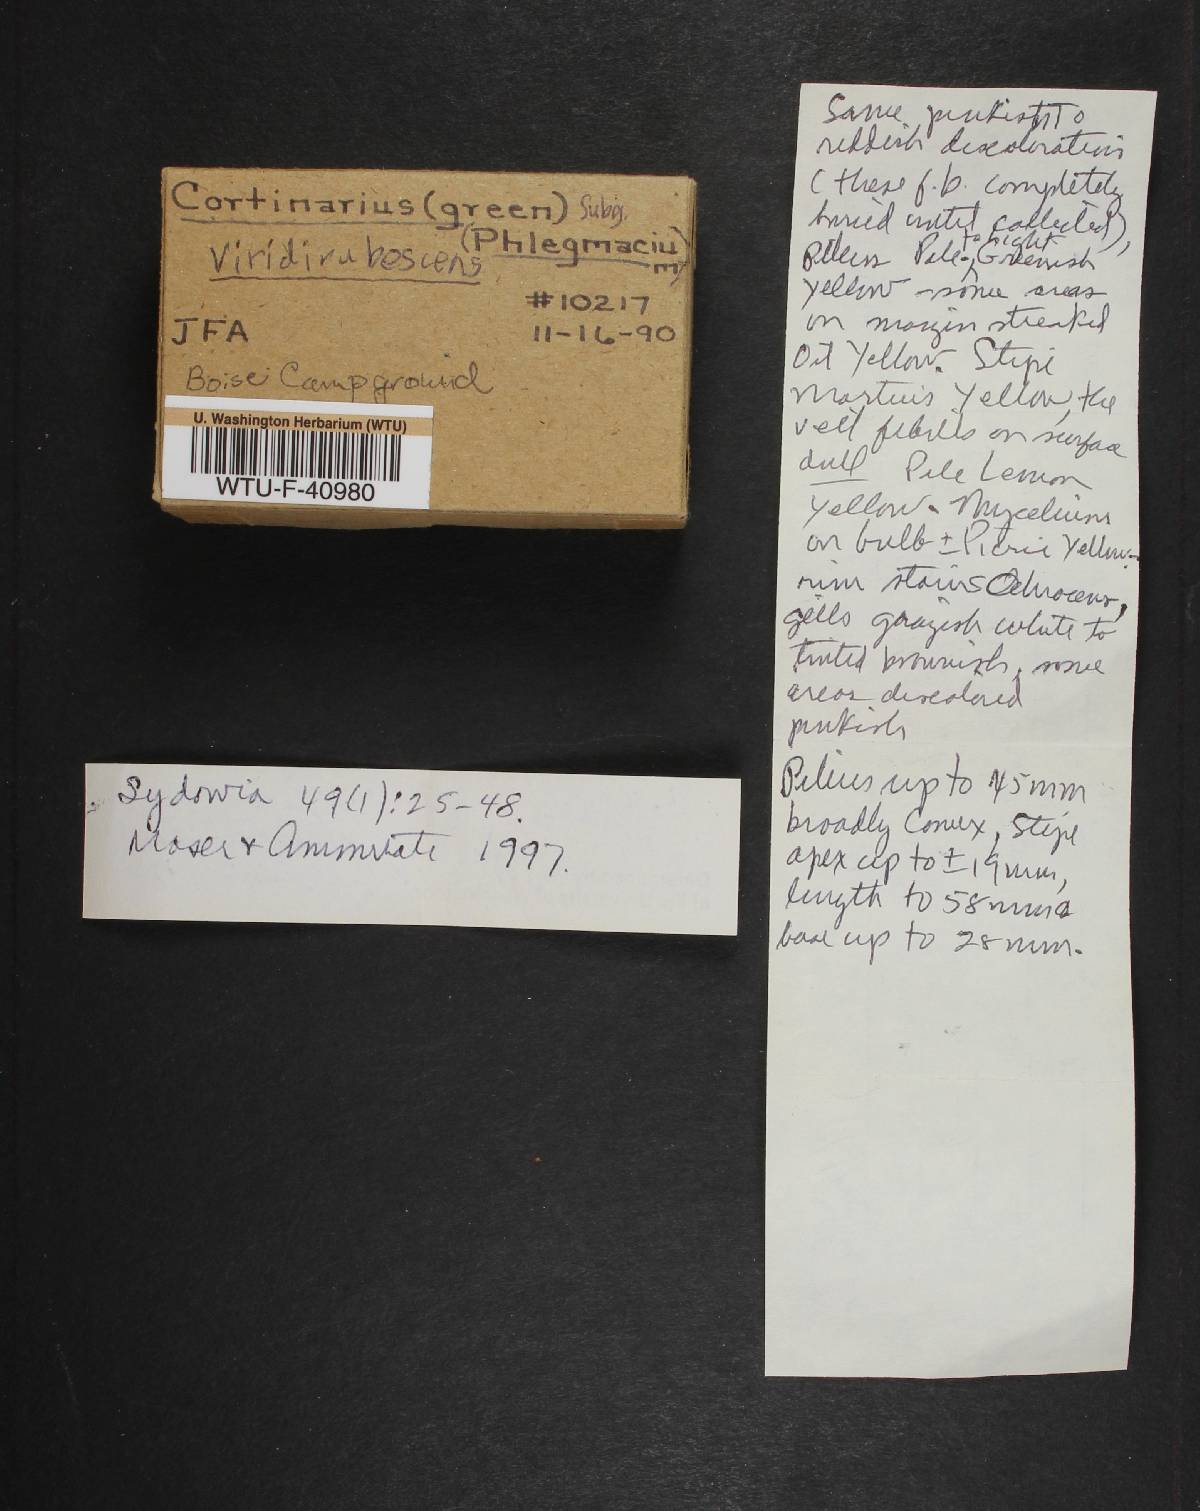 Cortinarius (green) Subg.
(Phlegmacium)
viridirubescens
#10217
JFA 11-16-90
Boise Campground
U. Washington Herbarium (WTU)
WTU-F-40980
Sydowia 49(1):25-48.
Moser & Ammirati 1997.
Same pinkish to
reddish discoloration
(these f.b. completely
buried until collected),
Pileus Pale to Light Greenish
Yellow - some areas
on margin streaked
Oil Yellow. Stipe
Martius Yellow, the
veil fibrils on surface
dull Pale Lemon
Yellow. Mycelium
on bulb ± Picric Yellow -
rim stains Ochraceus,
gills grayish white to
tinted brownish, some
areas discolored
pinkish
Pileus up to 45mm
broadly convex, stipe
apex up to ± 19mm,
length to 58mm
base up to 28mm.